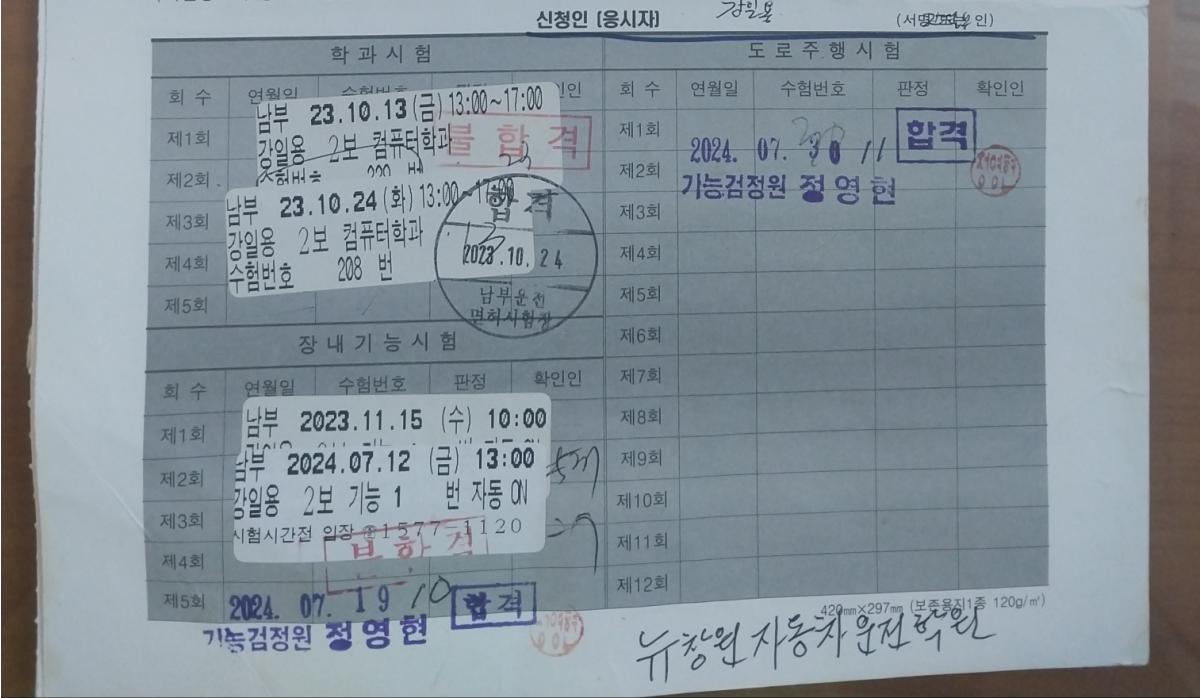 신청인 [응시자] 강일용 (서명 인)
학과시험
회 수 연월일 수험번호
남부 23.10.13(금) 13:00~17:00
제1회 강일용 2보 컴퓨터학과 불합격
제2회 수험번호 번
남부 23.10.24(화) 13:00~17:00 합격
제3회 강일용 2보 컴퓨터학과
제4회 수험번호 208 번 2023.10.24
제5회 남부운전
면허시험장
장내기능시험
회 수 연월일 수험번호 판정 확인인
제1회 남부 2023.11.15 (수) 10:00
제2회 남부 2024.07.12 (금) 13:00
제3회 강일용 2보 기능 1 번 자동 ON
시험시간전 입장 ☎1577-1120
제4회 불합격
제5회 2024. 07. 19 10 합격
기능검정원 정영현
도로주행시험
회 수 연월일 수험번호 판정 확인인
제1회 2024. 07. 11 합격
제2회 기능검정원 정영현
제3회
제4회
제5회
제6회
제7회
제8회
제9회
제10회
제11회
제12회
420㎜×297㎜ (보존용지1종 120g/㎡)
뉴창원자동차운전학원